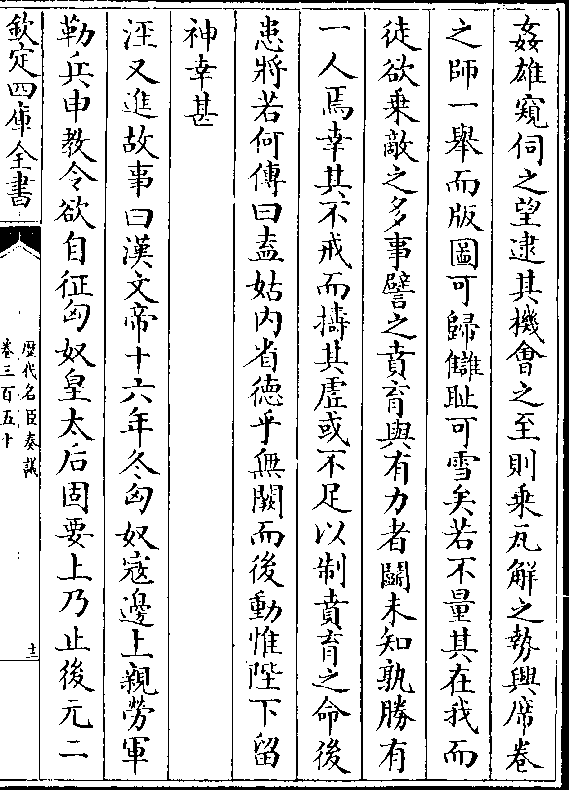 姦雄窺伺之望逮其機會之至則乗瓦解之勢興席卷
之師一舉而版圖可歸讎恥可雪矣若不量其在我而
徒欲乗敵之多事譬之賁育與有力者鬬未知孰勝有
一人焉幸其不戒而擣其虚或不足以制賁育之命後
患將若何傳曰盍姑內省德乎無闕而後動惟陛下留
神幸甚
淫又進故事曰漢文帝十六年冬匈奴寇邊上親勞軍
勒兵申教令欲自征匈奴皇太后固要上乃止後元二
欽定四庫全書
歴代名臣奏議
卷三百五十
十二